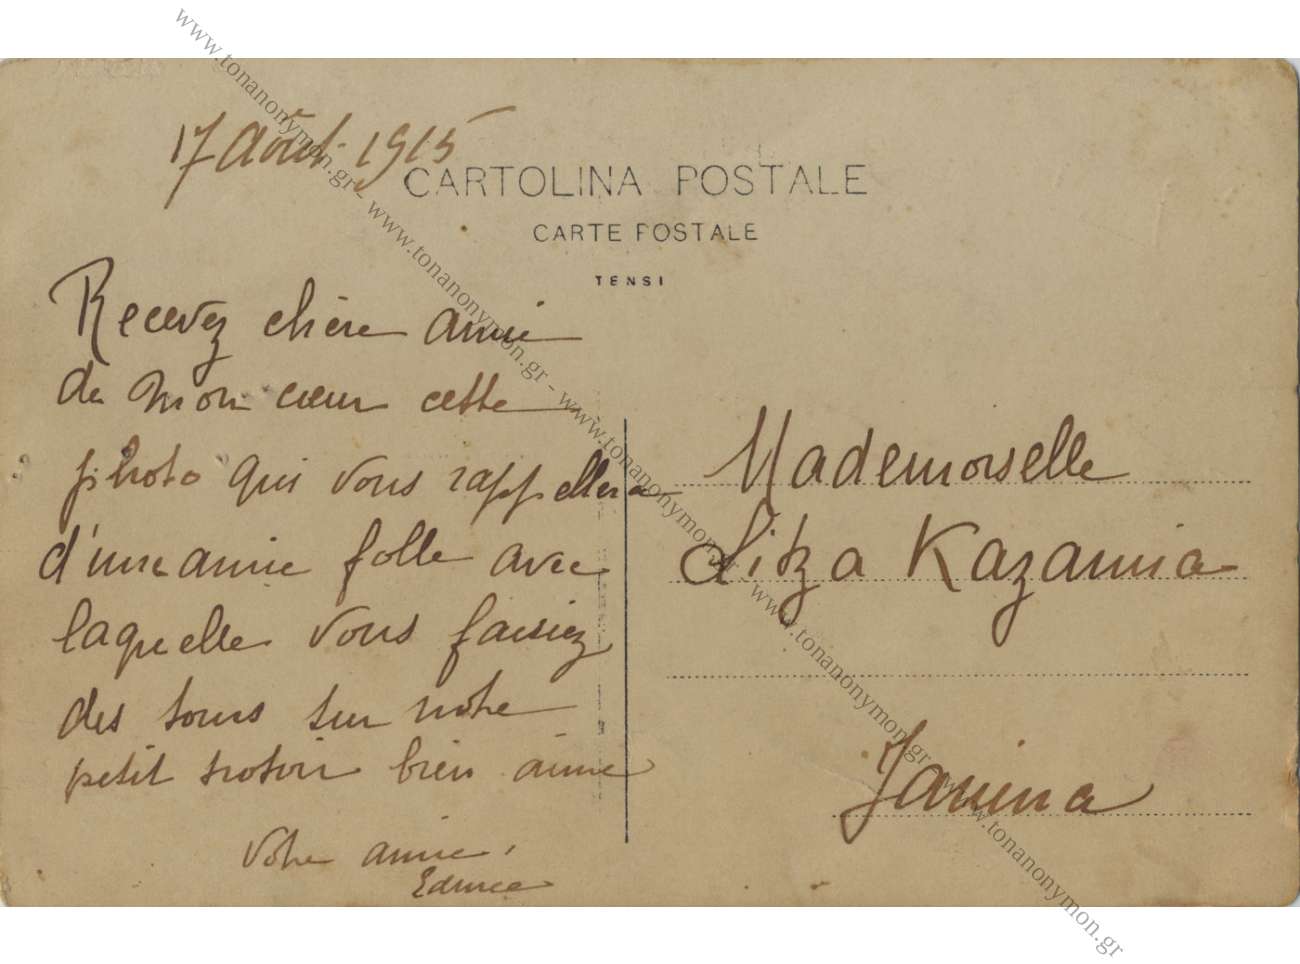 17 Août 1915
CARTOLINA POSTALE
CARTE POSTALE
TENSI
Recevez chère amie
de mon cœur cette
photo qui vous rappellera
d'une amie folle avec
laquelle vous faisiez
des tours sur notre
petit trotoir bien aimé
Votre amie,
Mademoiselle
Litza Kazamia
Janina
www.tonanonymon.gr - www.tonanonymon.gr - www.tonanonymon.gr - www.tonanonymon.gr - www.tonanonymon.gr